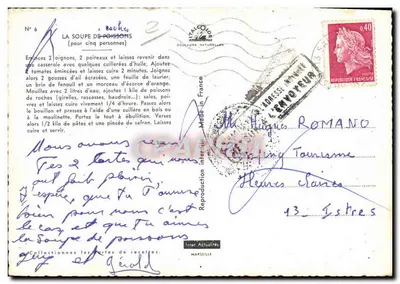 N° 6
roches
LA SOUPE DE POISSONS
(pour cinq personnes)
Emincez 2 oignons, 2 poireaux et laissez revenir dans
une casserole avec quelques cuillerées d'huile. Ajoutez
2 tomates émincées et laissez cuire 2 minutes. Joignez
alors 2 gousses d'ail écrasées, une feuille de laurier,
un brin de fenouil et un morceau d'écorce d'orange.
Mouillez avec 2 litres d'eau, ajoutez 1 kilo de poissons
de roches (girelles, rascasses, baudroie...) ; salez, poi-
vrez et laissez cuire vivement 1/4 d'heure. Passez alors
le bouillon et pressez à l'aide d'un cuillère en bois ou
à la moulinette. Portez le tout à ébullition. Versez
alors 1/2 kilo de pâtes et une pincée de safran. Laissez
cuire et servir.
Nous avons reçu
Tes 2 cartes qui nous
ont fait plaisir
J'espère que tu t'amuses
bien pour nous c'est
le cas et que tu aimes
la Soupe de poissons
guy et Gérald
Collectionnez les cartes de recettes.
COULEURS NATURELLES
Reproduction Interdite
Made in France
Inter Actualités
MARSEILLE
0,40
REPUBLIQUE FRANÇAISE
RETOUR
A L'ENVOYEUR
M. Hugues ROMANO
Camping Tourisme
Heures Claires
13 - Istres